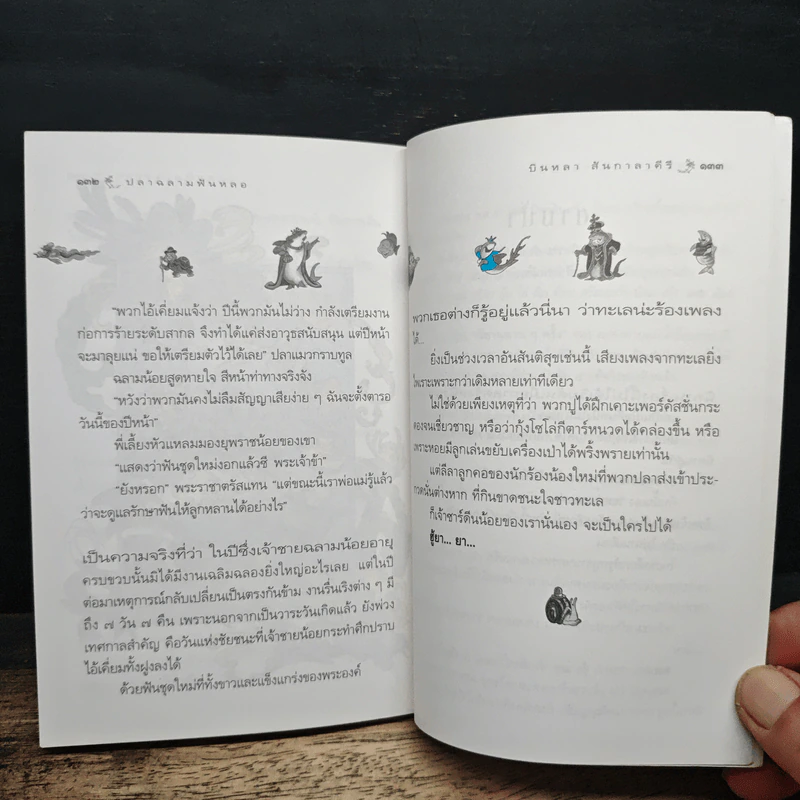 ๑๓๒ ปลาฉลามฟันหลอ
“พวกไอ้เคี่ยมแจ้งว่า ปีนี้พวกมันไม่ว่าง กำลังเตรียมงาน
ก่อการร้ายระดับสากล จึงทำได้แค่ส่งอาวุธสนับสนุน แต่ปีหน้า
จะมาลุยแน่ ขอให้เตรียมตัวไว้ได้เลย” ปลาแมวกราบทูล
ฉลามน้อยสูดหายใจ สีหน้าท่าทางจริงจัง
“หวังว่าพวกมันคงไม่ลืมสัญญาเสียง่าย ๆ ฉันจะตั้งตารอ
วันนี้ของปีหน้า”
พี่เลี้ยงหัวแหลมมองยุพราชน้อยของเขา
“แสดงว่าฟันชุดใหม่งอกแล้วซี พระเจ้าข้า”
“ยังหรอก” พระราชาตรัสแทน “แต่ขณะนี้เราพ่อแม่รู้แล้ว
ว่าจะดูแลรักษาฟันให้ลูกหลานได้อย่างไร”
เป็นความจริงที่ว่า ในปีซึ่งเจ้าชายฉลามน้อยอายุ
ครบขวบนั้นมิได้มีงานเฉลิมฉลองยิ่งใหญ่อะไรเลย แต่ในปี
ต่อมาเหตุการณ์กลับเปลี่ยนเป็นตรงกันข้าม งานรื่นเริงต่าง ๆ มี
ถึง ๗ วัน ๗ คืน เพราะนอกจากเป็นวาระวันเกิดแล้ว ยังพ่วง
เทศกาลสำคัญ คือวันแห่งชัยชนะที่เจ้าชายน้อยกระทำศึกปราบ
ไอ้เคี่ยมทั้งฝูงลงได้
ด้วยฟันชุดใหม่ที่ทั้งขาวและแข็งแกร่งของพระองค์
บินหลา สันกาลาคีรี ๑๓๓
พวกเธอต่างก็รู้อยู่แล้วนี่นา ว่าทะเลน่ะร้องเพลง
ได้...
ยิ่งเป็นช่วงเวลาอันสันติสุขเช่นนี้ เสียงเพลงจากทะเลยิ่ง
ไพเราะเพราะกว่าเดิมหลายเท่าทีเดียว
ไม่ใช่ด้วยเพียงเหตุที่ว่า พวกปูได้ฝึกเคาะเพอร์คัสชั่นกระ
ดองจนเชี่ยวชาญ หรือว่ากุ้งโซโล่กีตาร์หนวดได้คล่องขึ้น หรือ
เพราะหอยมีลูกเล่นขยับเครื่องเป่าได้พริ้งพรายเท่านั้น
แต่ลีลาลูกคอของนักร้องน้องใหม่ที่พวกปลาส่งเข้าประ-
กวดนั่นต่างหาก ที่กินขาดชนะใจชาวทะเล
ก็เจ้าซาร์ดีนน้อยของเรานั่นเอง จะเป็นใครไปได้
ฮู้ยา... ยา...